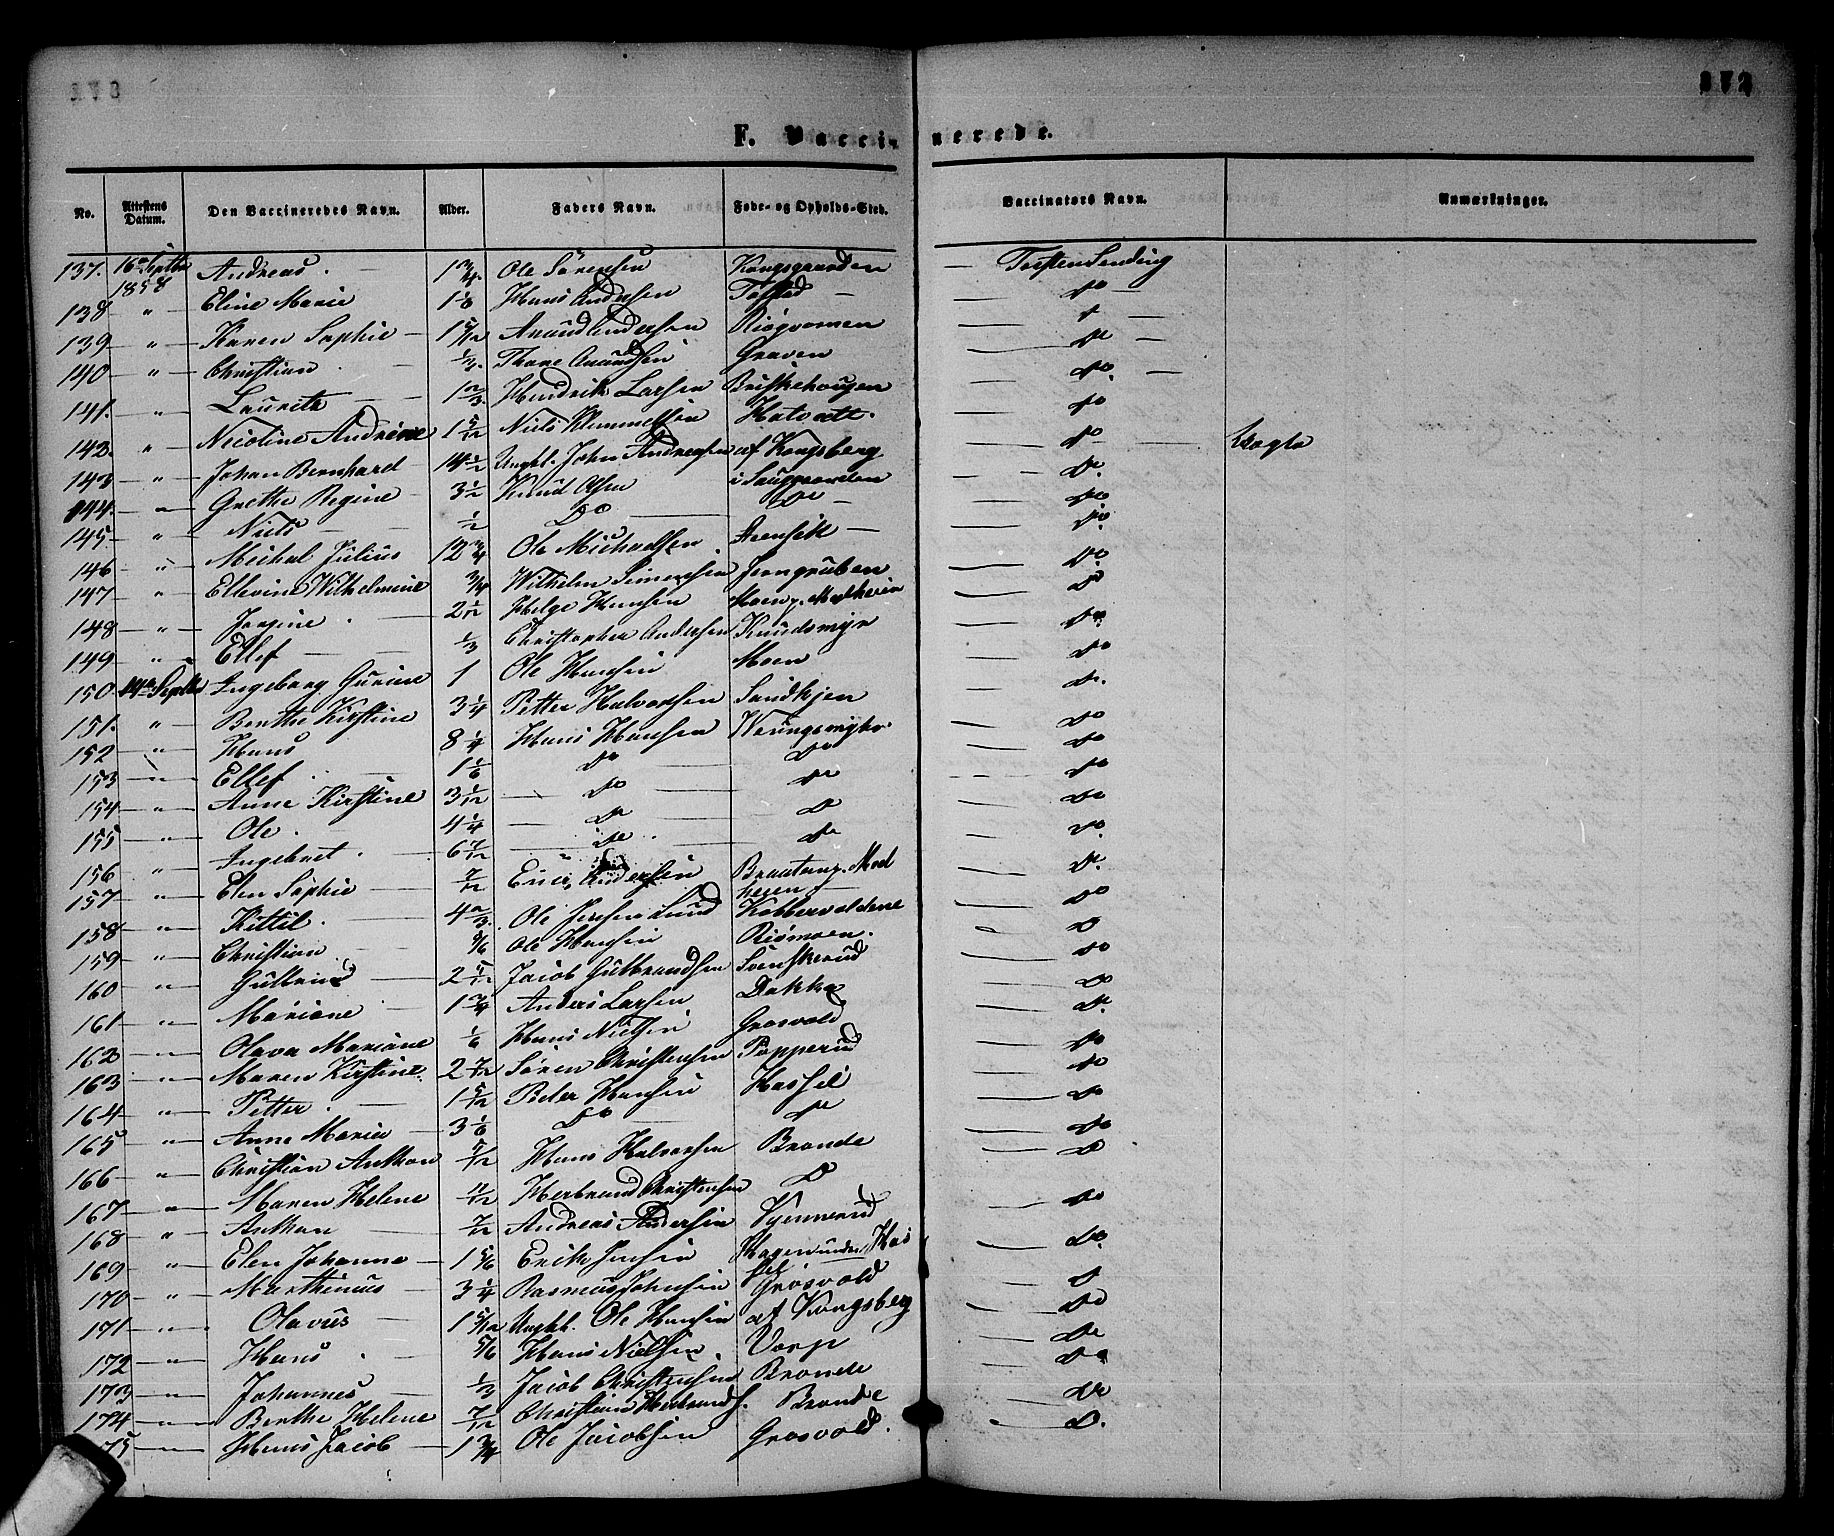 372
F. Vaccinerede.
No. Attestens Datum. Den Vaccineredes Navn. Alder. Faders Navn. Føde- og Opholds-Sted. Vaccinators Navn. Anmærkninger.
137. 16de Septbr 1858 Andreas. 1 3/4. Ole Sørensen Kongsgaarden Torsten Lending
138 " Eline Marie 1 1/6 Hans Andersen Tofstad do
139 " Karen Sophie 1 5/12 Anund Andersen Risgvornen do
140 " Christian 1/4. Thore Anundsen Graven do
141. " Lauritz 1 2/3 Hendrik Larsen Briskehougen do.
142. " Nicoline Andrine 1 5/12 Niels Klemmetsen Hvatvett. do
143 " Johan Bernhard 14 1/2 Ungkl. John Andreasen af Kongsberg do Vogta
144. " Grethe Regine 3 1/2 Knud Olsen i Saggrenden do.
145. " Niels 1/2 Do do do
146 " Michal Julius 12 3/4 Ole Michaelsen Svensek do
147 " Ellevine Wilhelmine 3/4 Wilhelm Simensen Jerngruben do
148 " Jorgine 2 1/12 Helge Hansen Moen p. Modheien do
149 " Ellef 1/3 Christopher Andersen Knudsmyr do.
150 14de Septbr Ingeborg Gurine 1 Ole Hansen Moen do
151. " Berthe Kirstine 3 1/4 Petter Halvorsen Sandkjen do.
152 " Hans 8 1/4 Hans Hansen Werungsmyhr do
153 " Ellef. 1 1/6 do do do
154 " Anne Kirstine 3 1/12 do do do
155 " Ole. 4 1/4 do do do
156 " Ingebret. 6 7/12 do do do.
157 " Elen Sophie 7/12 Erik Andersen Brautenp. Modheien do.
158 " Kittil. 4 2/3. Ole Jensen Lund Kobbervoldene do
159 " Christian 5/6 Ole Hansen Rismoen. do
160 " Gulbrand 2 5/12 Jacob Gulbrandsen Svenskerud do
161 " Mariane 1 3/4 Anders Larsen Dokka do
162 " Olava Mariane 1/6 Hans Nielsen Grosvold do.
163 " Maren Kirstine. 2 7/12 Søren Christensen Popperud do
164 " Petter. 1 5/12 Peder Hansen Hassel do
165 " Anne Maria 3 1/6 Do do do
166 " Christian Anthon 5/12 Hans Halvorsen Brønde do
167 " Maren Helene 11/12 Herbrand Christensen do do
168 " Anthon 7/12 Andreas Andersen Vjennerud do
169 " Elen Johanne 1 5/6 Erik Jensen Hagen under Hassel do.
170 " Marthinus 3 1/4 Rasmus Johnsen Grosvold do
171 " Olavus 1 5/12 Ungkl. Ole Hansen af Kongsberg do
172 " Hans. 5/6 Hans Nielsen. Vorp do
173 " Johannes 1/3 Jacob Christensen Brønde do
174 " Berthe Helene 7/12 Christian Herbrands. Brønde do
175 " Hans Jacob 1 3/4 Ole Jacobsen Grosvold. do.